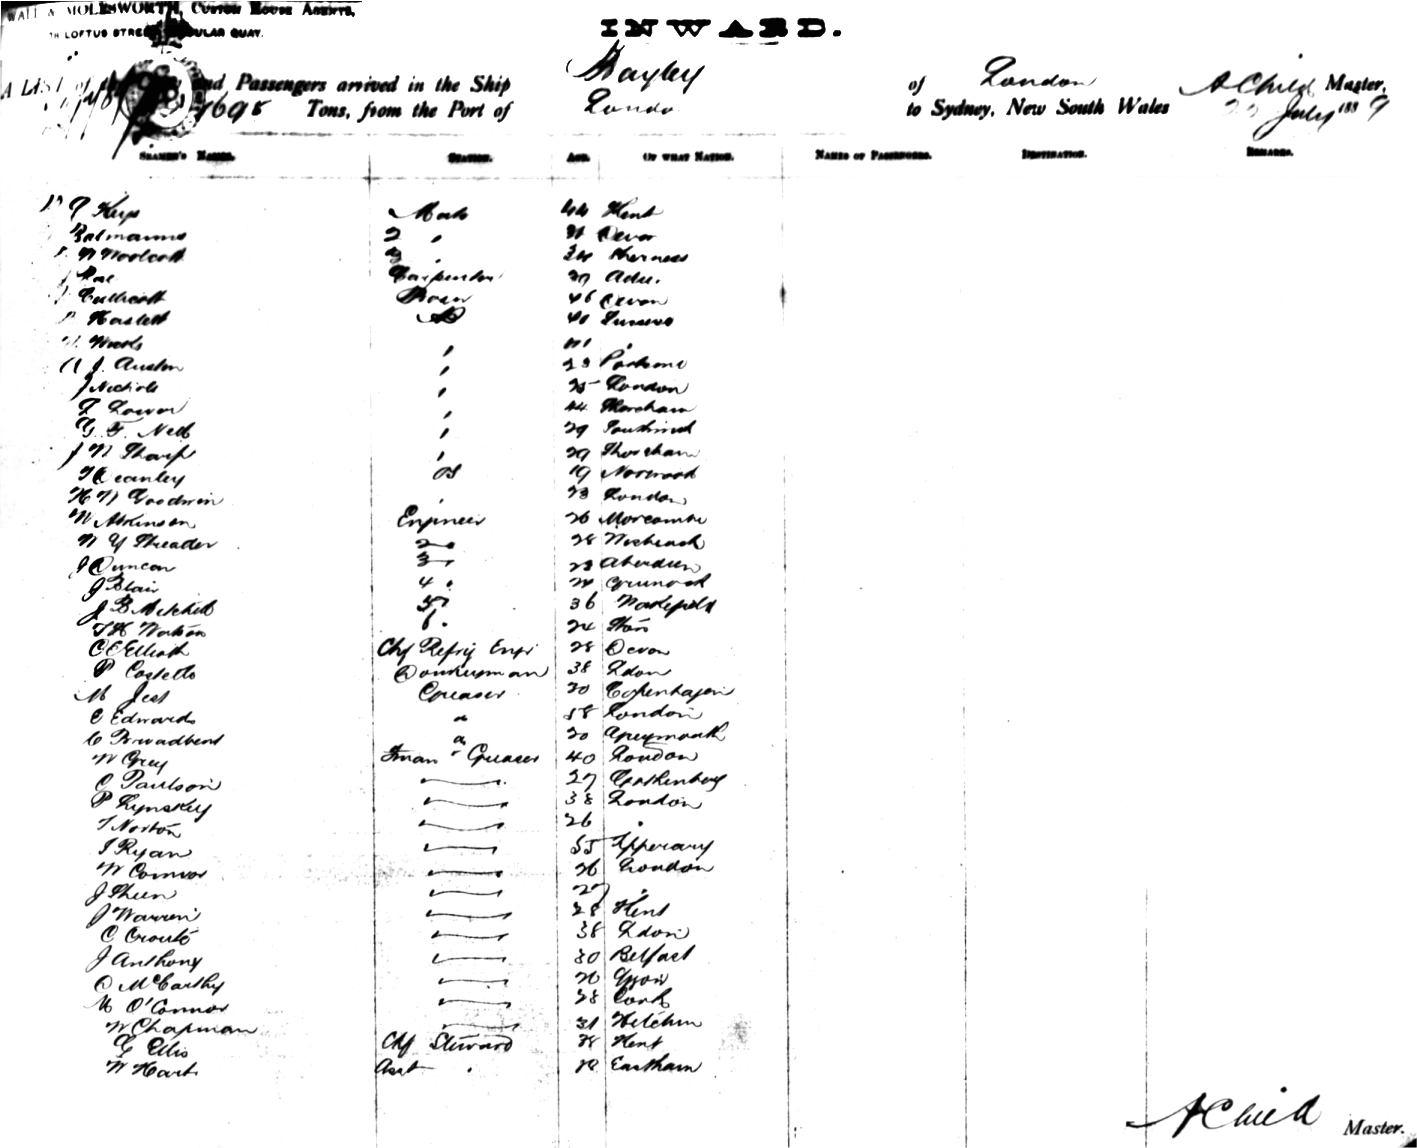 WALL & MOLESWORTH, CUSTOM HOUSE AGENTS,
LOFTUS STREET, CIRCULAR QUAY.
INWARD.
A LIST of the and Passengers arrived in the Ship Bayley of London A Child Master,
1698 Tons, from the Port of London to Sydney, New South Wales 22 July 1889
SEAMEN'S NAMES. STATION. AGE. OF WHAT NATION. NAMES OF PASSENGERS. DESTINATION. REMARKS.
Keys Mate 44 Kent
2 "
W Woolcott 3 " 34
Rae Carpenter
Bosn 46 Devon
Haslett AB 40
Woods "
J. Austin " 23
J Nichols " 25 London
" 44 Shoreham
G F. Nell " 29
J W Tharp " 29 Shoreham
Deanley OS 19 Norwood
H W Goodwin " 23 London
W Atkinson Engineer 26 Morcambe
W Y Theader 2 " 28
J Duncan 3 " 23 Aberdeen
J Blair 4 " 24 Greenock
J B Mitchell 5 " 36 Wakefield
T H Watson 6 " 24
C E Elliott Chf Refrig Engr 28 Devon
P Costello Donkeyman 38 Ldon
M Jest Greaser 30 Copenhagen
C Edwards " 58 London
C Broadbent " 20 Greymouth
W Grey Fman & Greaser 40 London
C Paulson 27 Gothenberg
P Lynskey 38 London
T Norton 26 "
J Ryan 55 Tipperary
W Connor 26 London
J Sheen 27 "
J Warren 28 Kent
C Croute 38 Ldon
J Anthony 30 Belfast
D McCarthy 26
M O'Connor 28 Cork
W Chapman 31 Hitchin
G Ellis Chf Steward 38 Kent
W Hart Asst " Eastham
A Child Master.